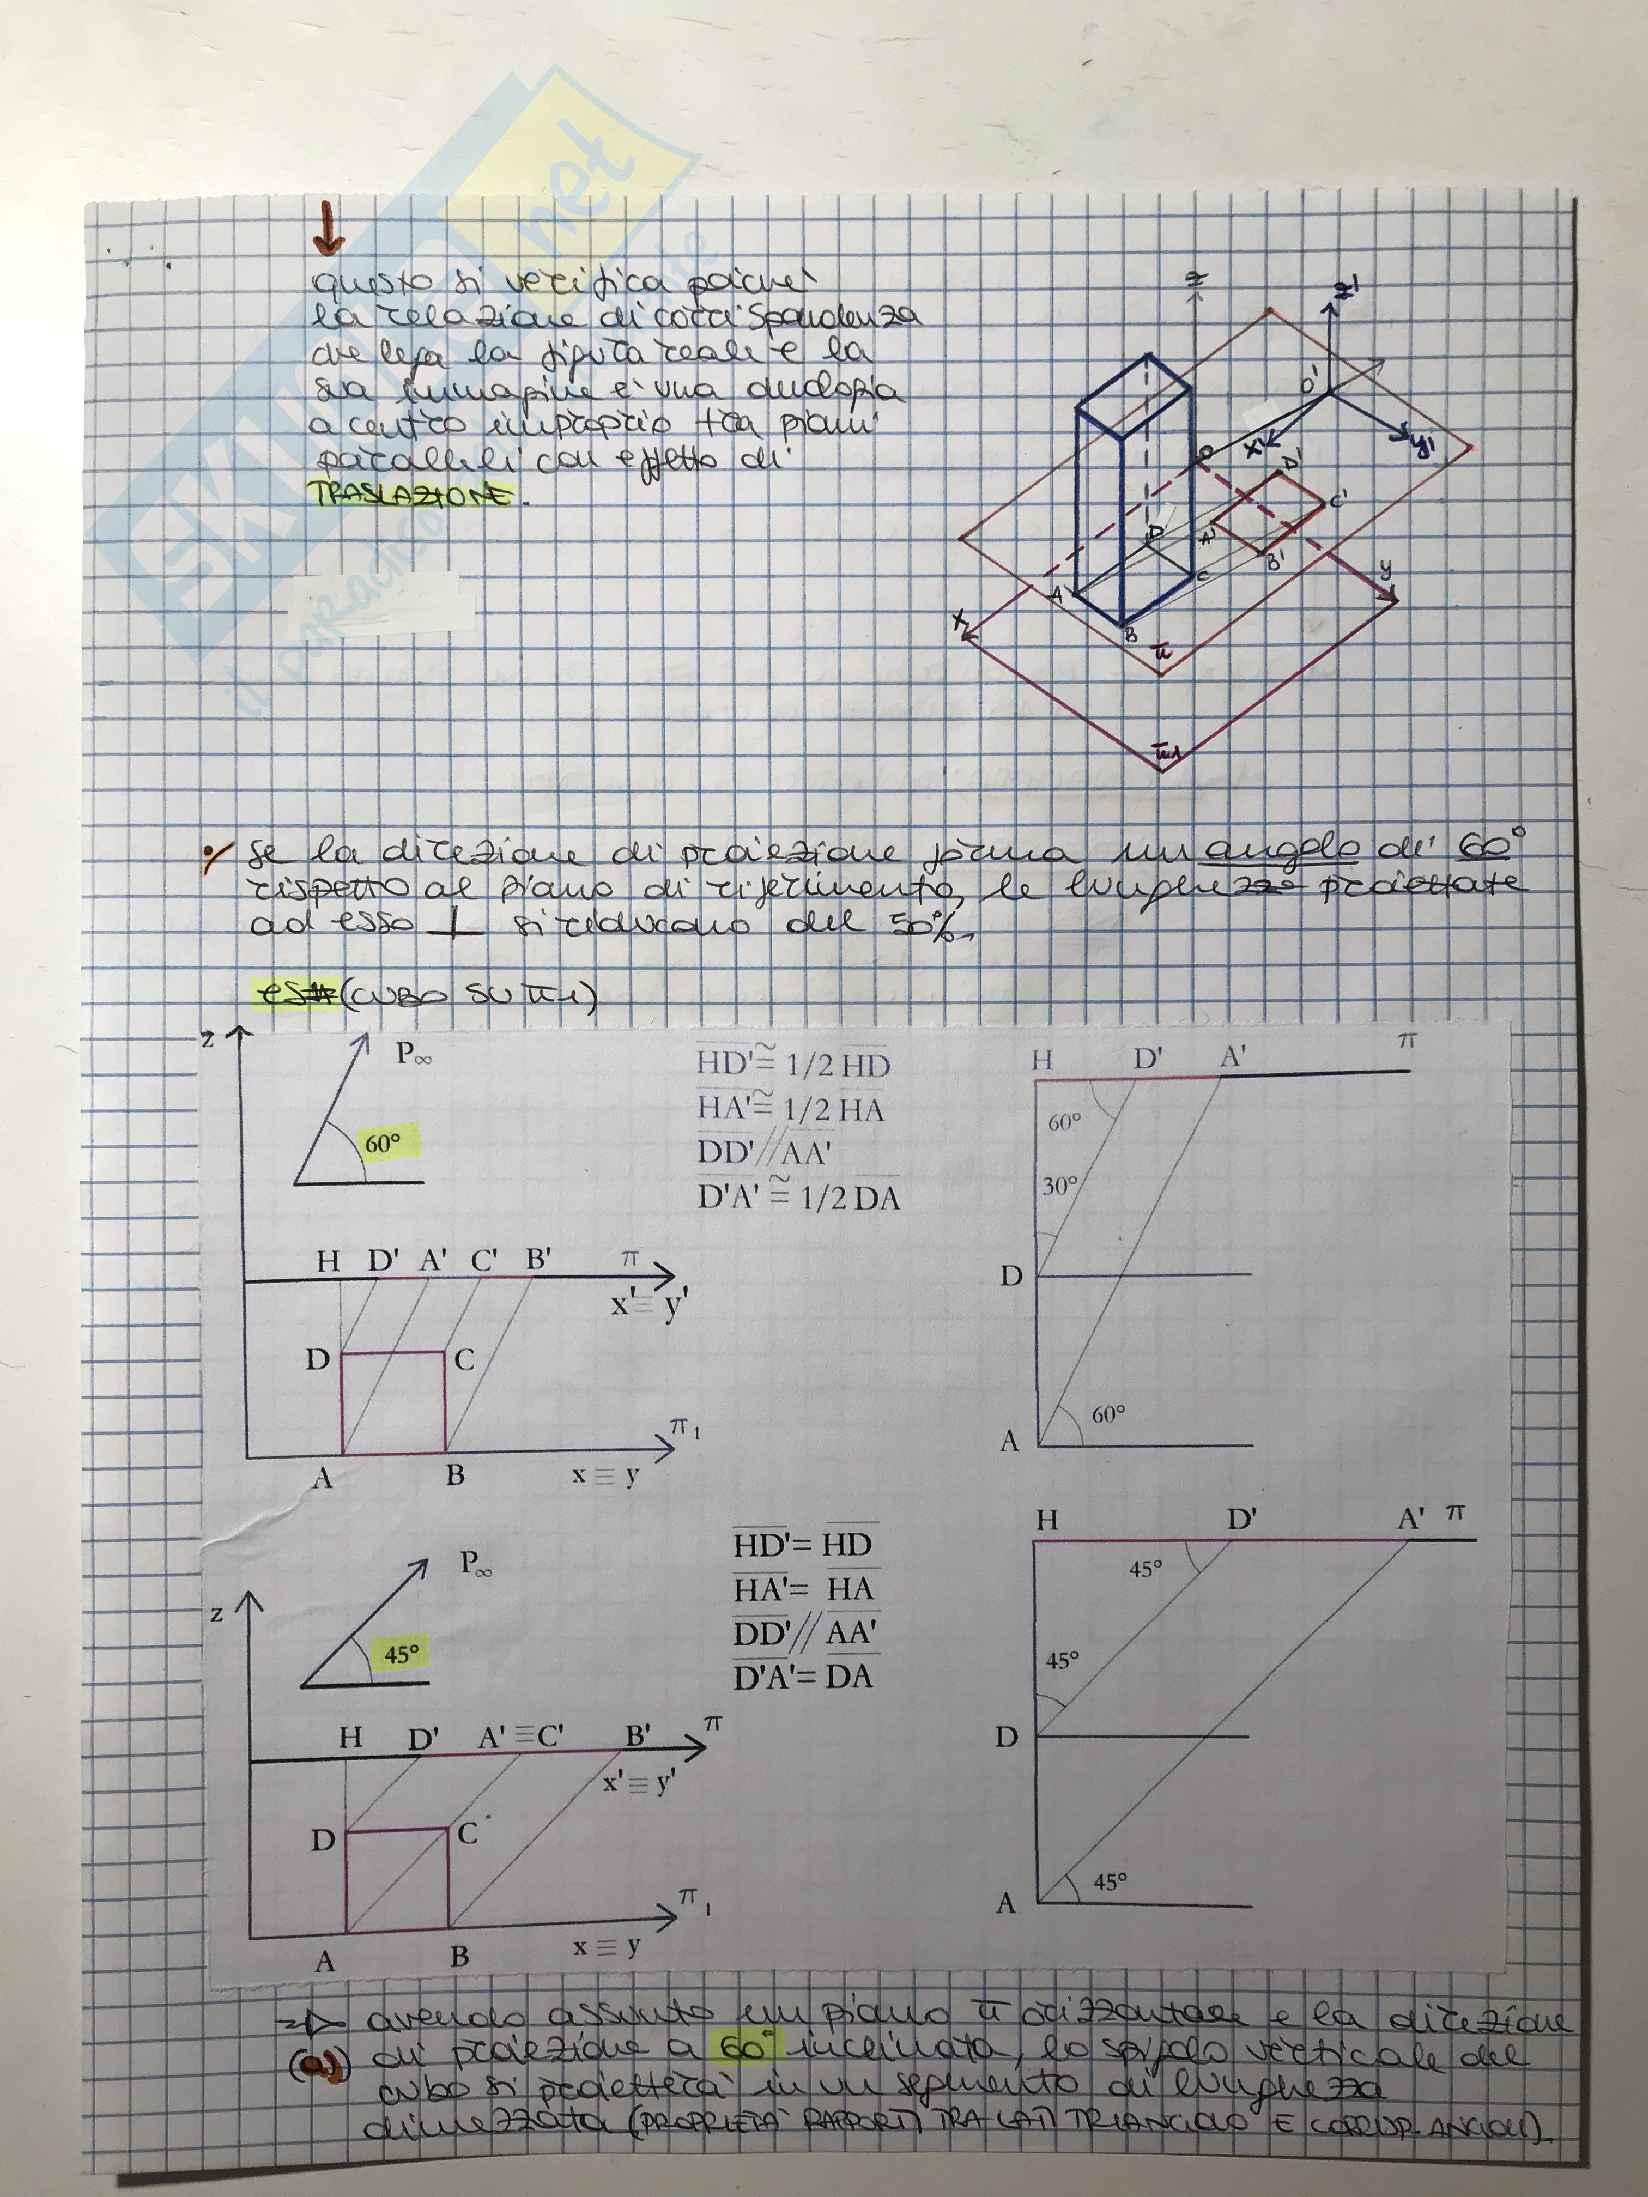 questo si verifica poiché
la relazione di corrispondenza
che lega la figura reale e la
sua immagine è una omologia
a centro improprio tra piani
paralleli con effetto di
TRASLAZIONE.
z
z'
O'
x'
y'
O
D'
C'
A'
B'
D
C
A
B
x
y
π
π1
SKUOLA.net
il paradiso
se la direzione di proiezione forma un angolo di 60°
rispetto al piano di riferimento, le lunghezze proiettate
ad esso ⊥ si riducono del 50%.
es (CUBO SU π1)
z
P∞
60°
HD' ≅ 1/2 HD
HA' ≅ 1/2 HA
DD' // AA'
D'A' ≅ 1/2 DA
H D' A' π
60°
30°
D
A
60°
H D' A' C' B' π
x' ≡ y'
D C
π1
A B x ≡ y
z
P∞
45°
HD' = HD
HA' = HA
DD' // AA'
D'A' = DA
H D' A' π
45°
45°
D
A
45°
H D' A' ≡ C' B' π
x' ≡ y'
D C
π1
A B x ≡ y
avendo assunto un piano π orizzontale e la direzione
(a) di proiezione a 60° inclinata, lo spigolo verticale del
cubo si proietterà in un segmento di lunghezza
dimezzata (PROPRIETÀ RAPPORTI TRA LATI TRIANGOLO E CORRISP. ANGOLI).